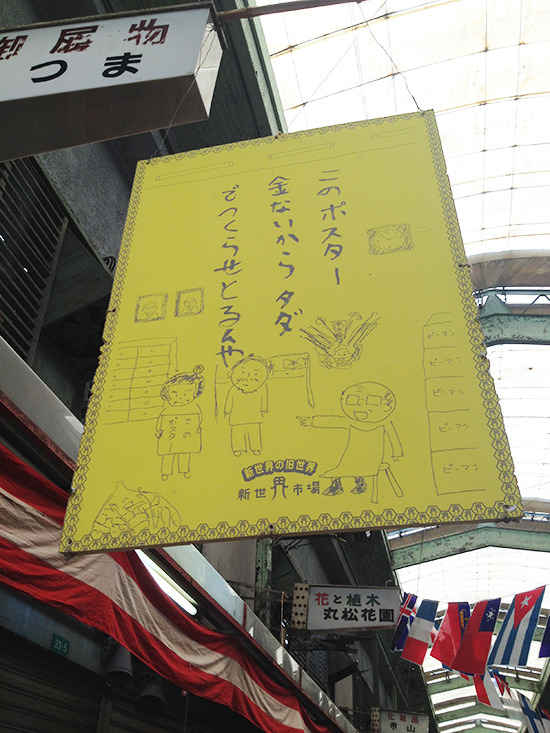 御履物
つま
このポスター
金ないから タダ
でつくらせとるんや
ピーマン
ピーマン
ピーマン
ピーマン
ピーマン
この
ポスタ
新世界の旧世界
新世界市場
花と植木
丸松花園
22-5
化粧品